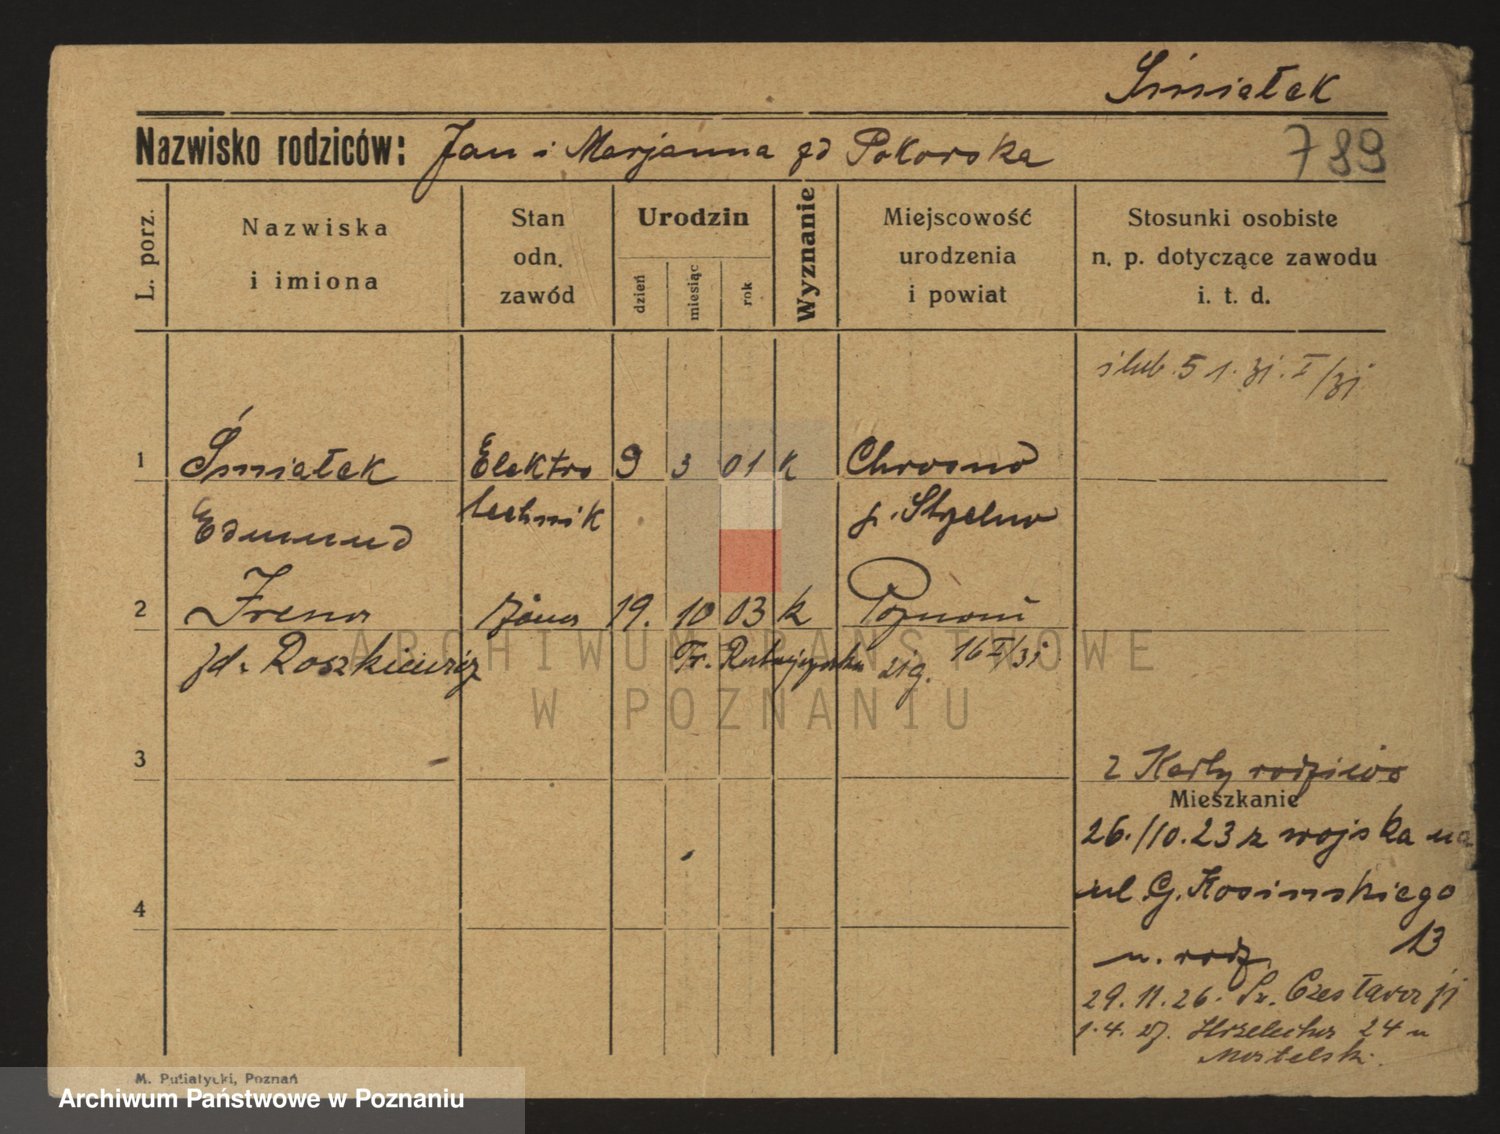 Śmiałek
Nazwisko rodziców: Jan i Marjanna zd Pokorska
789
L. porz.
Nazwiska
i imiona
Stan
odn.
zawód
Urodzin
dzień
miesiąc
rok
Wyznanie
Miejscowość
urodzenia
i powiat
Stosunki osobiste
n. p. dotyczące zawodu
i. t. d.
ślub. 5 1. 31. I/31
1 Śmiałek Elektro 9 3 01 k Chrosno
Edmund technik p. Strzelno
2 Irena żona 19. 10 03 k Poznań
zd. Roszkiewicz Fr. zig. 16 I/31
3
z Karty rodziców
Mieszkanie
26./10.23 z wojska na
ul G. Kosinskiego
13
4
u. rodz.
29. 11. 26. Św. Czesława
1. 4. 27. Strzelecka 24 u
M. Putiatycki, Poznań
ARCHIWUM PAŃSTWOWE
W POZNANIU
Archiwum Państwowe w Poznaniu